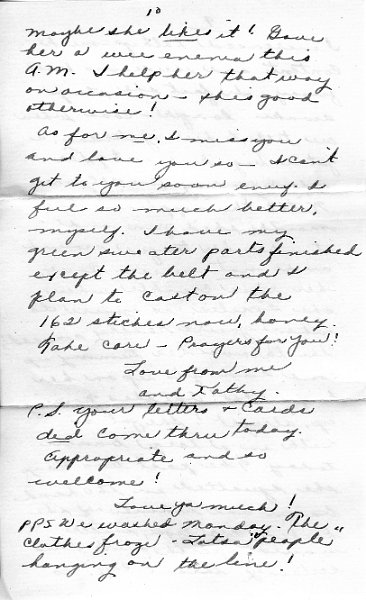 10
maybe she likes it! Gave
her a wee enema this
A.M. I help her that way
on occasion - she's good
otherwise!
As for me, I miss you
and love you so - I can't
get to you soon enuf. I
feel so much better,
myself. I have my
green sweater parts finished
except the belt and I
plan to cast on the
162 stiches now, honey.
Take care - Prayers for you!
Love from me
and Kathy.
P.S. your letters & cards
did come thru today.
Appropriate and so
welcome!
Love ya much!
PPS We washed Monday. The
clothes froze - Lotsa "people"
hanging on the line!